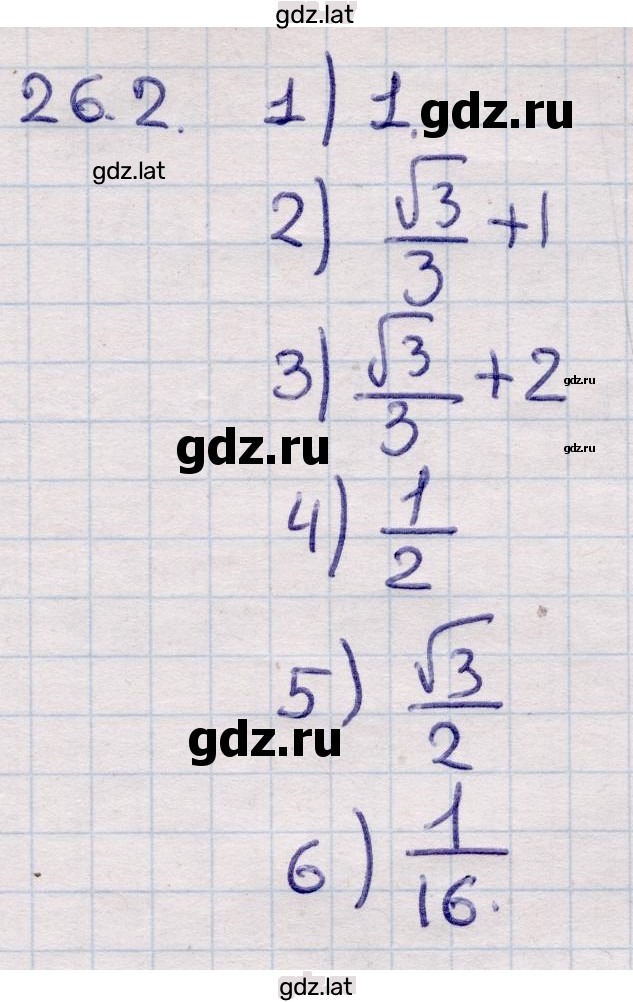 gdz.lat
26.2. 1) 1. gdz.ru
gdz.lat
2) √3/3 + 1
3) √3/3 + 2 gdz.ru
gdz.ru gdz.ru
4) 1/2
5) √3/2
gdz.ru
6) 1/16.
gdz.lat